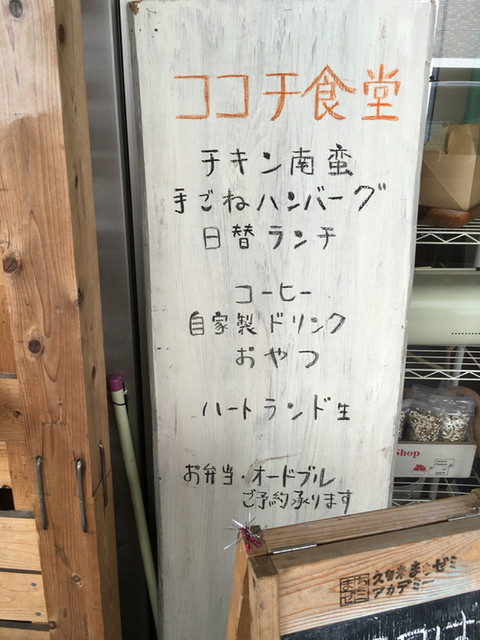 ココチ食堂
チキン南蛮
手ごねハンバーグ
日替ランチ
コーヒー
自家製ドリンク
おやつ
ハートランド生
お弁当・オードブル
ご予約承ります
Shop
まちゼミ
久留米まちゼミ
アカデミー